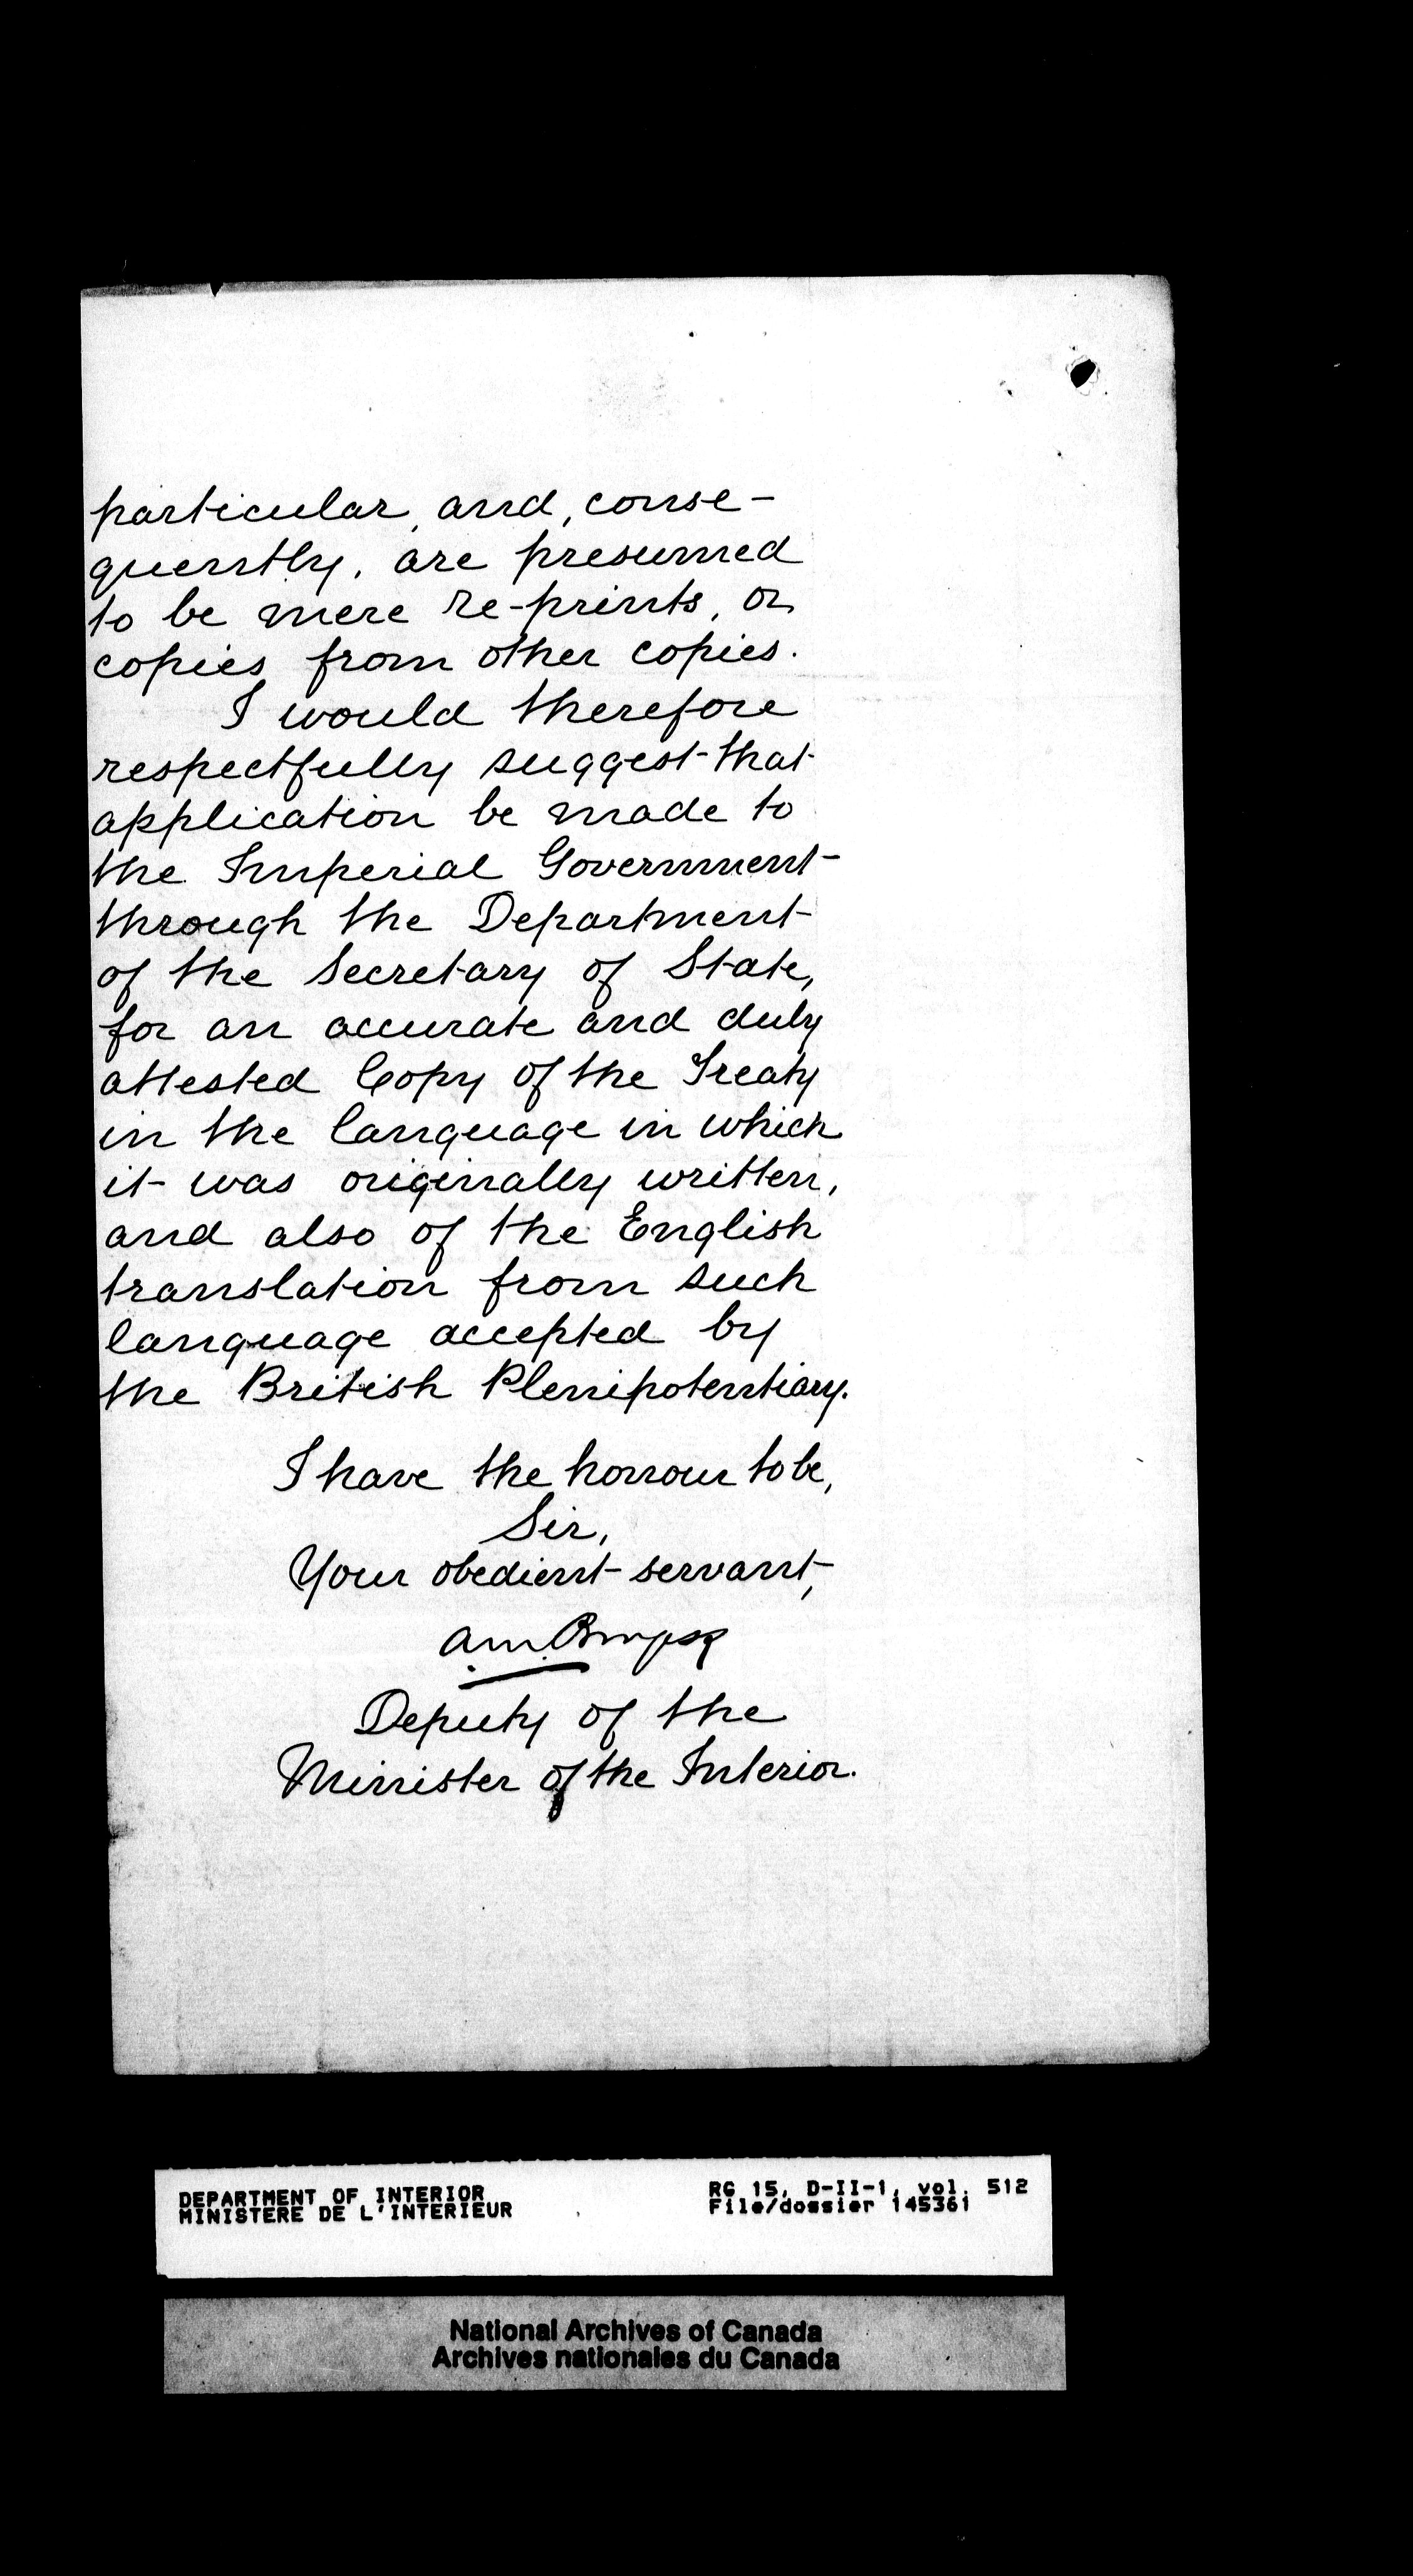 particular, and, conse-
quently, are presumed
to be mere re-prints, or
copies from other copies.
I would therefore
respectfully suggest that
application be made to
the Imperial Government
through the Department
of the Secretary of State,
for an accurate and duly
attested Copy of the Treaty
in the language in which
it was originally written,
and also of the English
translation from such
language accepted by
the British Plenipotentiary.
I have the honour to be,
Sir,
Your obedient servant,
A. M. Burgess
Deputy of the
Minister of the Interior.
DEPARTMENT OF INTERIOR
MINISTERE DE L'INTERIEUR
RG 15, D-II-1, vol. 512
File/dossier 145361
National Archives of Canada
Archives nationales du Canada